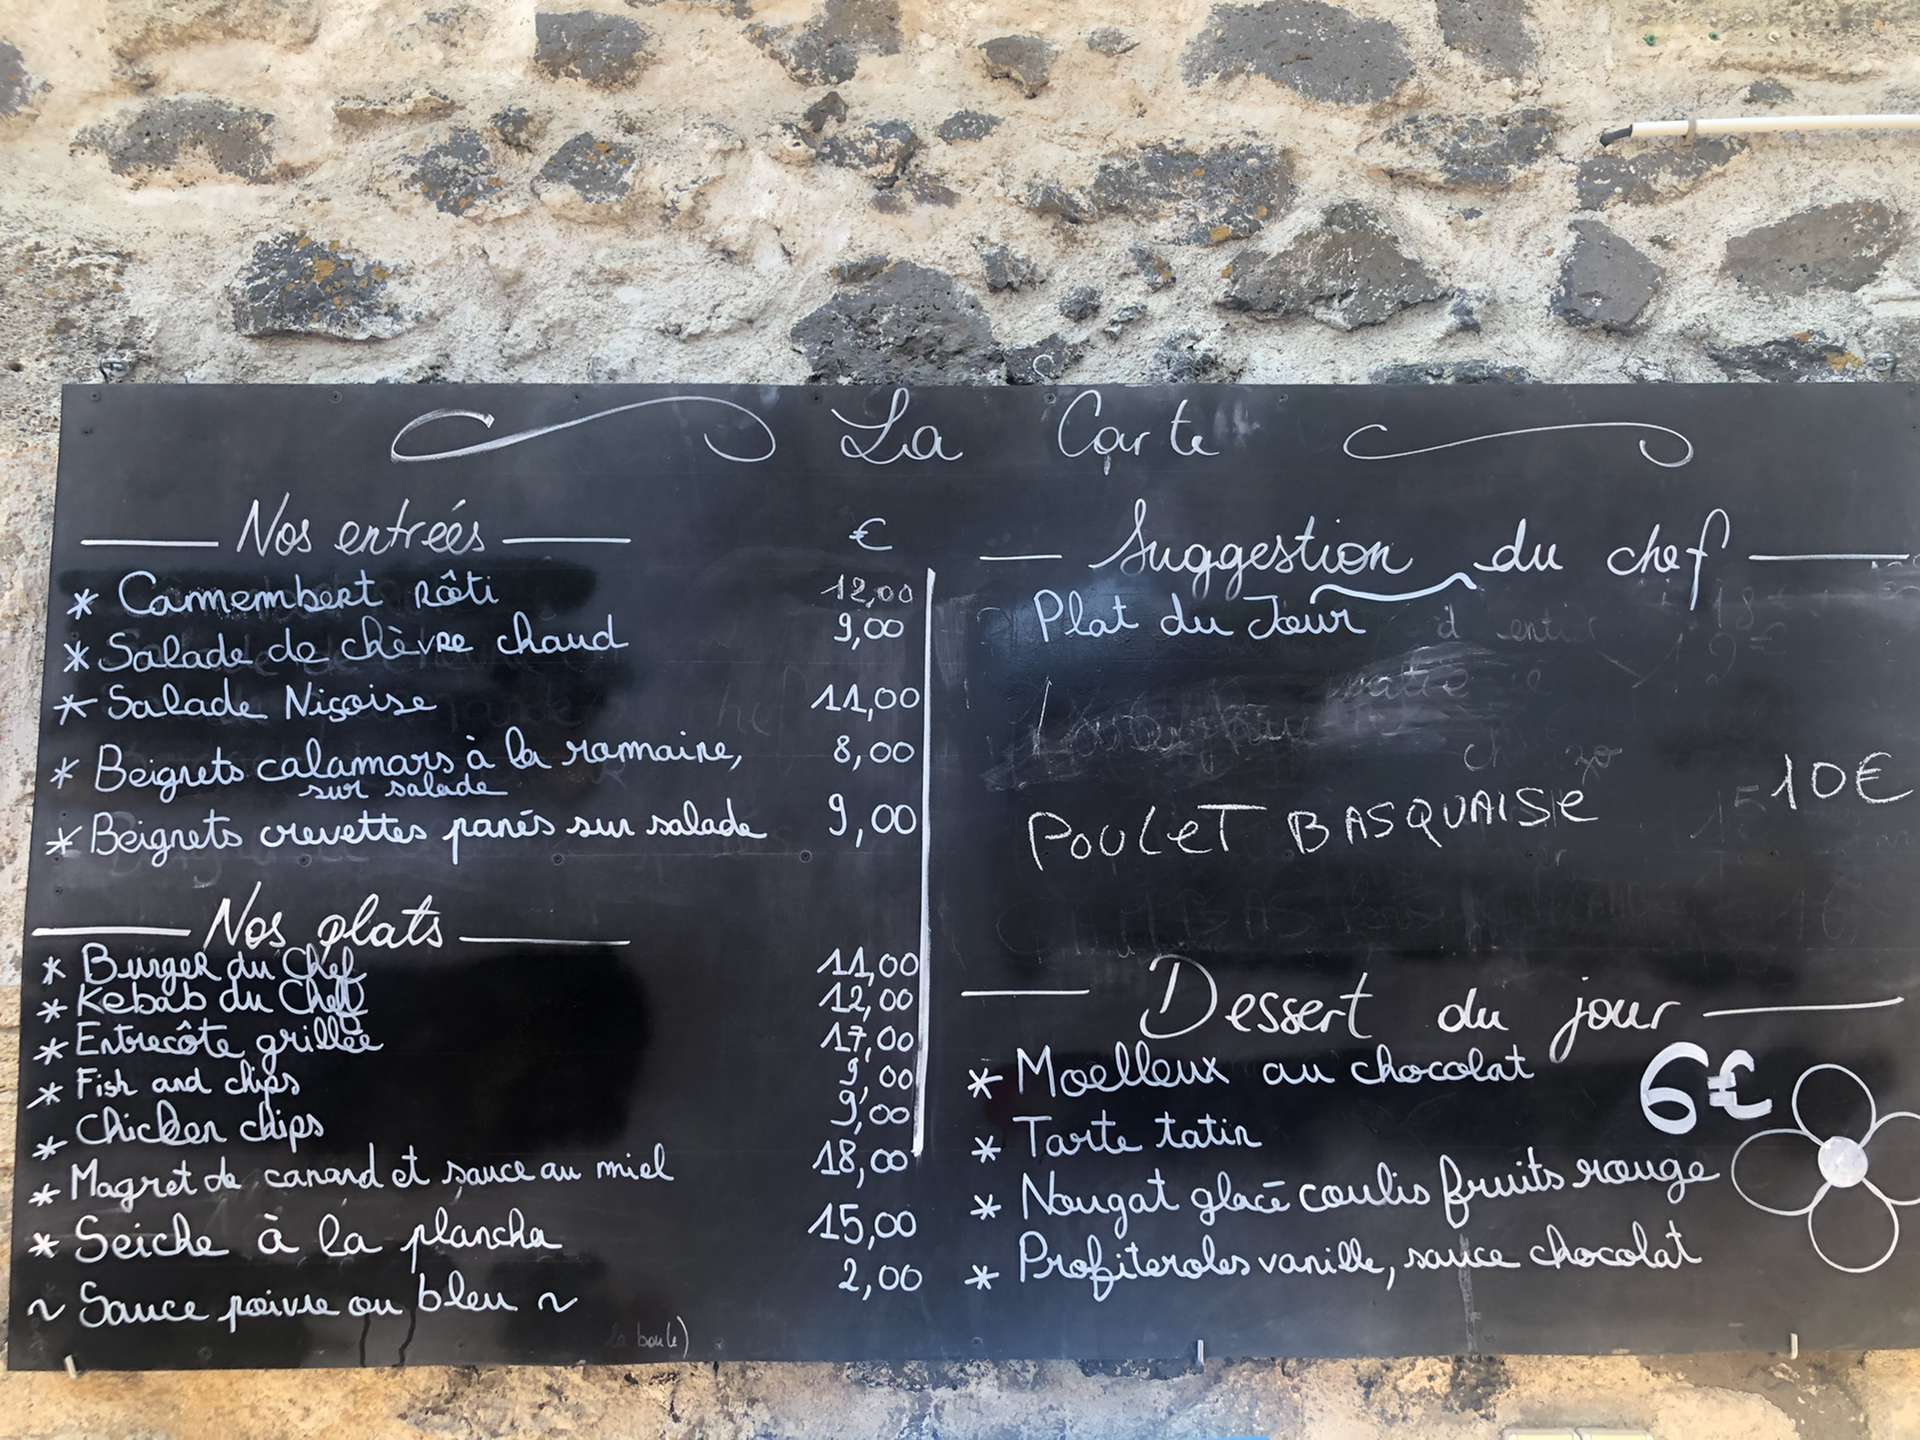 La Carte
Nos entrées €
* Camembert rôti 12,00
* Salade de chèvre chaud 9,00
* Salade Niçoise 11,00
* Beignets calamars à la romaine, 8,00
sur salade
* Beignets crevettes panés sur salade 9,00
Nos plats
* Burger du Chef 11,00
* Kebab du Chef 12,00
* Entrecôte grillée 17,00
* Fish and chips 9,00
* Chicken chips 9,00
* Magret de canard et sauce au miel 18,00
* Seiche à la plancha 15,00
~ Sauce poivre ou bleu ~ 2,00
Suggestion du chef
Plat du Jour
POULET BASQUAISE 10€
Dessert du jour
* Moelleux au chocolat 6€
* Tarte tatin
* Nougat glacé coulis fruits rouge
* Profiteroles vanille, sauce chocolat